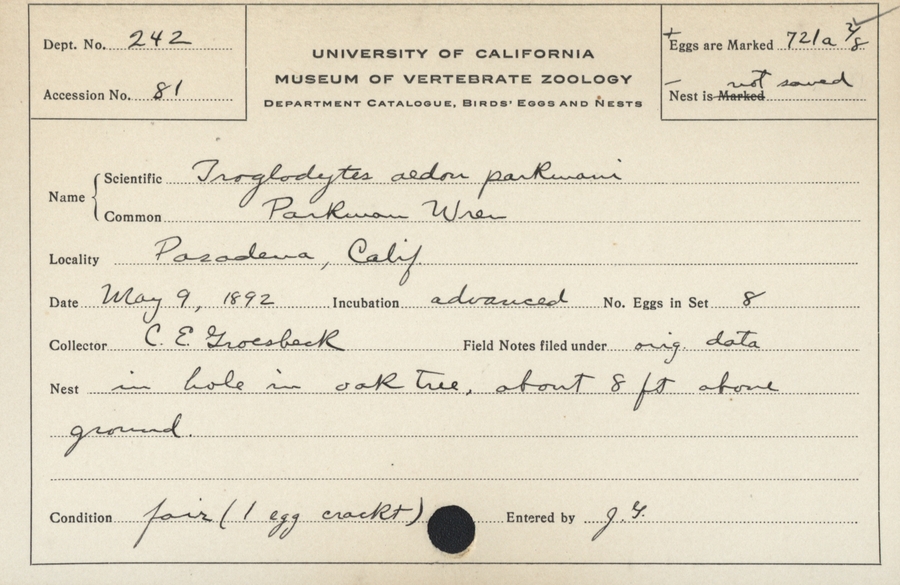 Dept. No. 242
Accession No. 81
UNIVERSITY OF CALIFORNIA
MUSEUM OF VERTEBRATE ZOOLOGY
DEPARTMENT CATALOGUE, BIRDS' EGGS AND NESTS
+ Eggs are Marked 721a 2/8
not saved
– Nest is Marked
Name { Scientific Troglodytes aedon parkmani
Common Parkman Wren
Locality Pasadena, Calif.
Date May 9, 1892 Incubation advanced No. Eggs in Set 8
Collector C. E. Groesbeck Field Notes filed under orig. data
Nest in hole in oak tree, about 8 ft above
ground.
Condition fair (1 egg crackt) Entered by J. G.